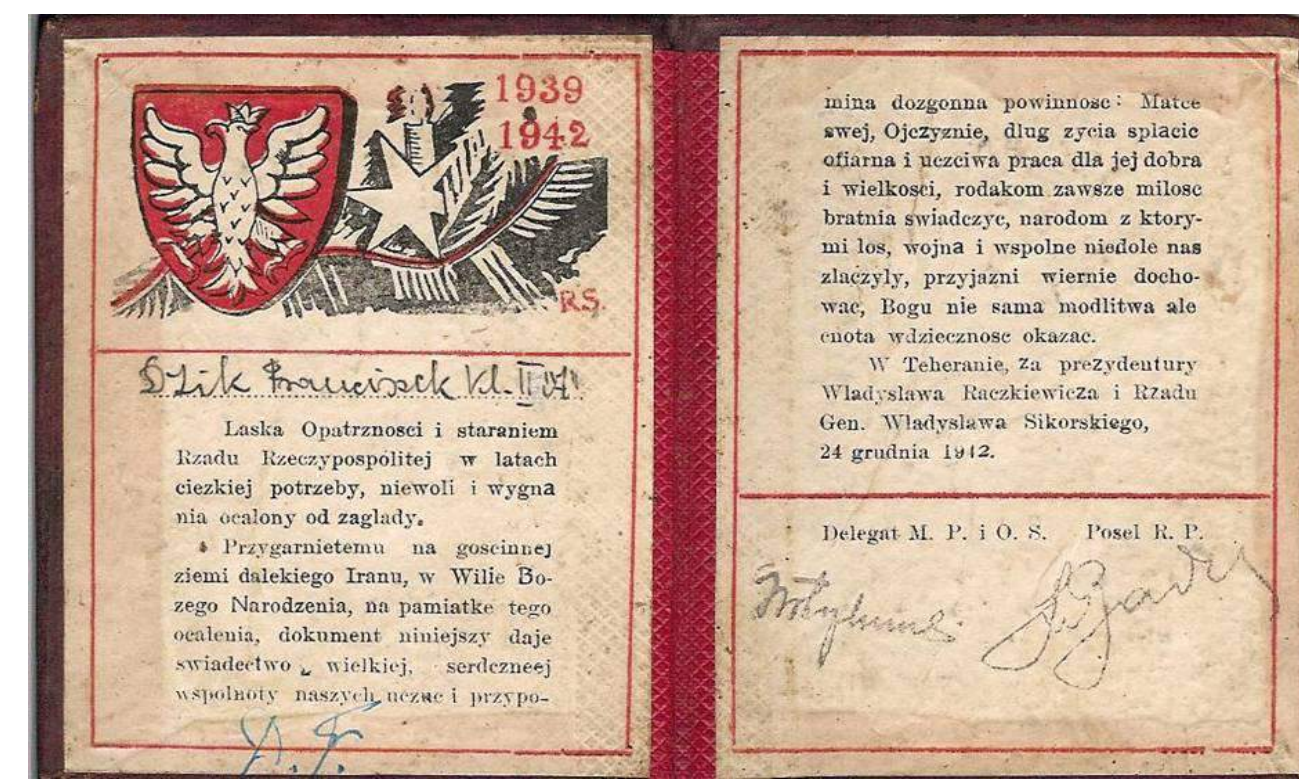 1939
1942
R.S.
Dzik Franciszek Kl. II
Laska Opatrznosci i staraniem
Rzadu Rzeczypospolitej w latach
ciezkiej potrzeby, niewoli i wygna
nia ocalony od zaglady.
Przygarnietemu na goscinnej
ziemi dalekiego Iranu, w Wilie Bo-
zego Narodzenia, na pamiatke tego
ocalenia, dokument niniejszy daje
swiadectwo wielkiej, serdczneej
wspolnoty naszych uczuc i przypo-
D. F.
mina dozgonna powinnosc: Matce
swej, Ojczyznie, dlug zycia splacic
ofiarna i uczciwa praca dla jej dobra
i wielkosci, rodakom zawsze milosc
bratnia swiadczyc, narodom z ktory-
mi los, wojna i wspolne niedole nas
zlaczyly, przyjazni wiernie docho-
wac, Bogu nie sama modlitwa ale
cnota wdziecznosc okazac.
W Teheranie, za prezydentury
Wladyslawa Raczkiewicza i Rzadu
Gen. Wladyslawa Sikorskiego,
24 grudnia 1942.
Delegat M. P. i O. S. Posel R. P.